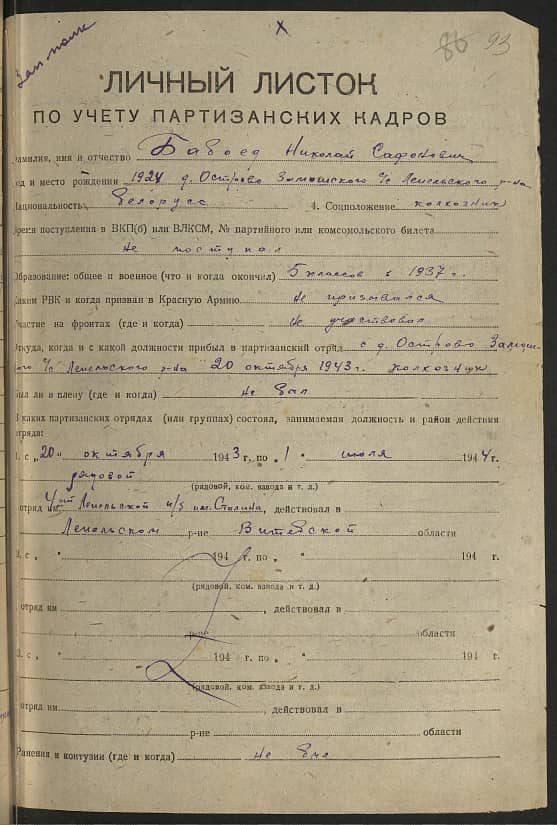 Зап. полк
х
86 93
ЛИЧНЫЙ ЛИСТОК
ПО УЧЕТУ ПАРТИЗАНСКИХ КАДРОВ
Фамилия, имя и отчество Бабоед Николай Сафонович
Год и место рождения 1924 д. Острово Замошского с/с Лепельского р-на
Национальность Белорусс 4. Соцположение колхозник
Время поступления в ВКП(б) или ВЛКСМ, № партийного или комсомольского билета
не поступал
Образование: общее и военное (что и когда окончил) 5 классов в 1937 г.
Каким РВК и когда призван в Красную Армию не призывался
Участие на фронтах (где и когда) не участвовал
Откуда, когда и с какой должности прибыл в партизанский отряд с д. Острово Замош-
ского с/с Лепельского р-на 20 октября 1943 г. колхозник
Был ли в плену (где и когда) не был
В каких партизанских отрядах (или группах) состоял, занимаемая должность и район действия
отряда:
1. с „20" октября 1943 г. по „1" июля 1944 г.
рядовой
(рядовой, ком. взвода и т. д.)
отряд им. Лепельской п/б им. Сталина, действовал в
Лепельском р-не Витебской области
2. с „ " 194 г. по „ " 194 г.
(рядовой, ком. взвода и т. д.)
отряд им , действовал в
р-не области
3. с „ " 194 г. по „ " 194 г.
(рядовой, ком. взвода и т. д.)
отряд им. , действовал в
р-не области
Ранения и контузии (где и когда) не был